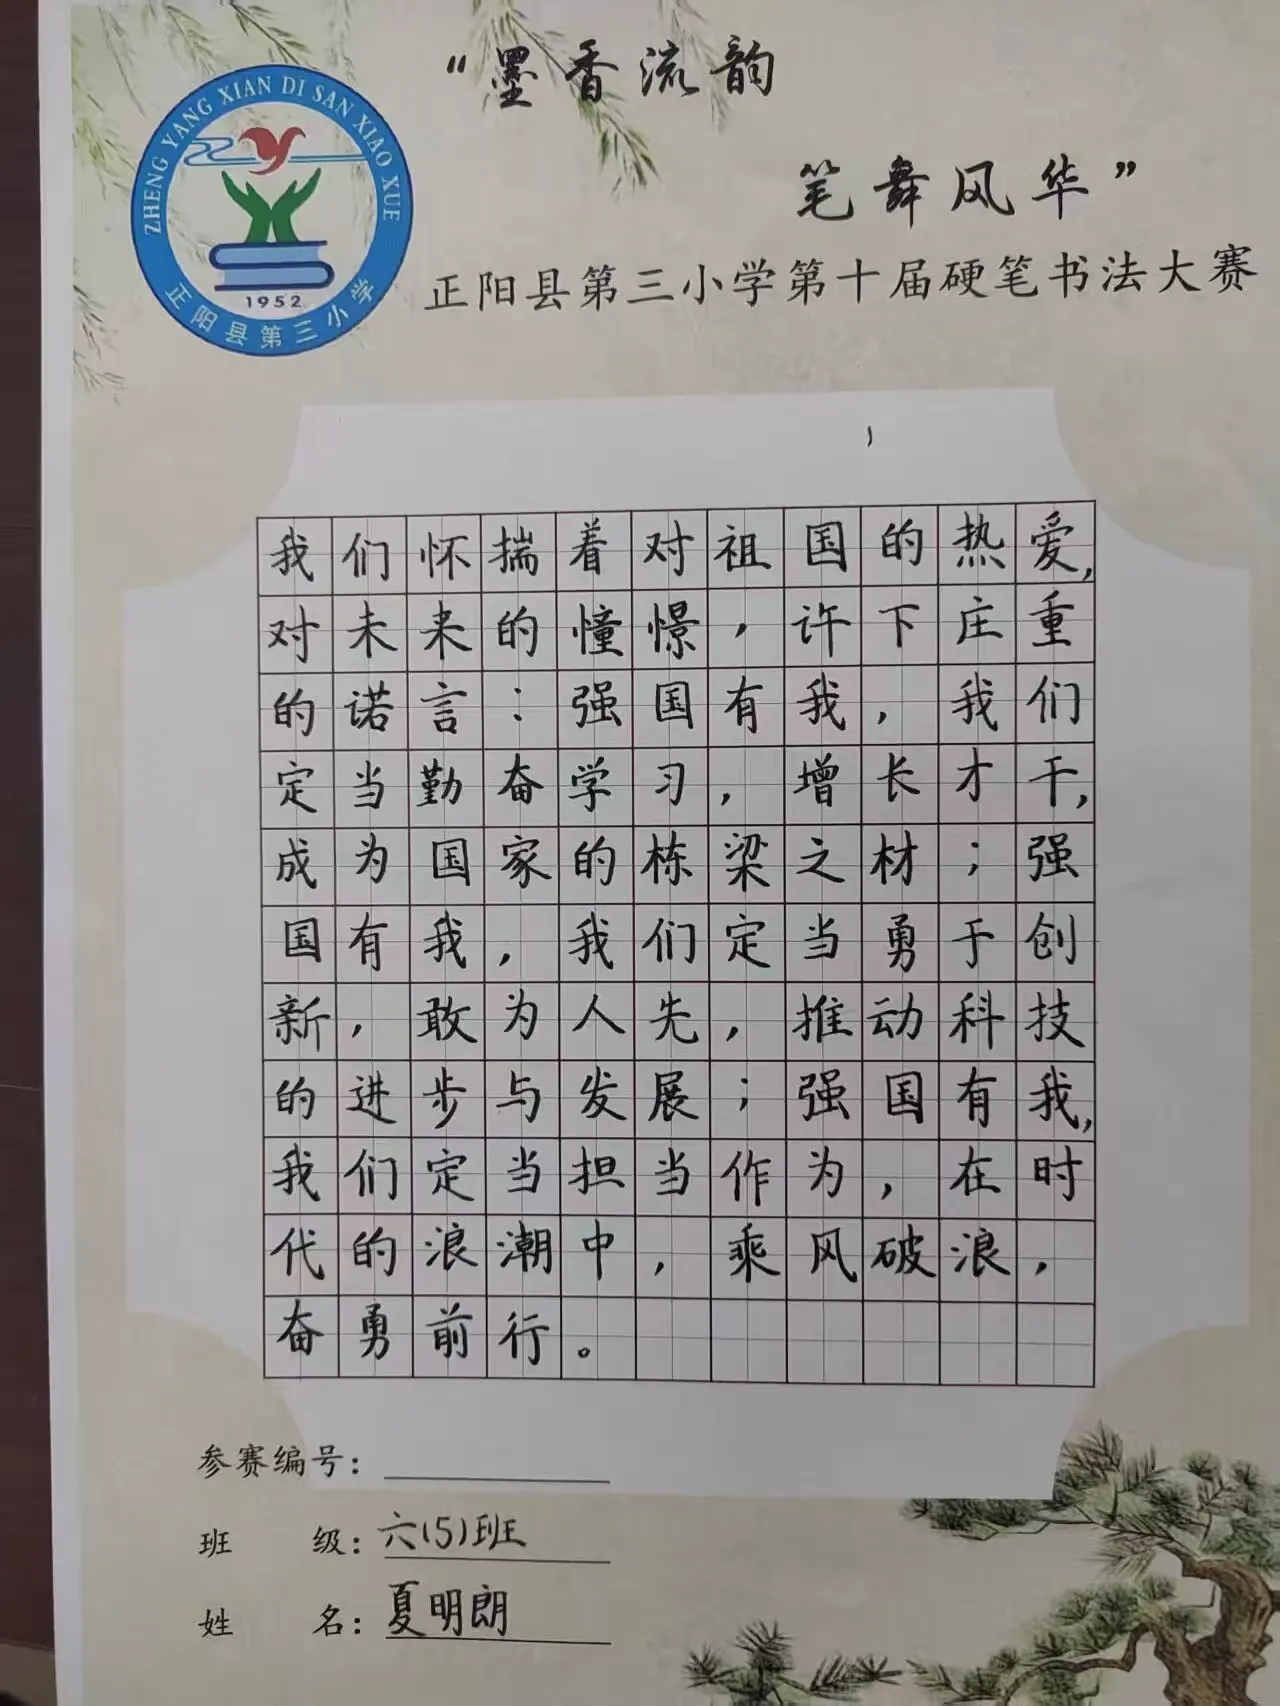 “墨香流韵
笔舞风华”
ZHENG YANG XIAN DI SAN XIAO XUE
1952
正阳县第三小学
正阳县第三小学第十届硬笔书法大赛
我们怀揣着对祖国的热爱,
对未来的憧憬，许下庄重
的诺言：强国有我，我们
定当勤奋学习，增长才干,
成为国家的栋梁之材；强
国有我，我们定当勇于创
新，敢为人先，推动科技
的进步与发展；强国有我,
我们定当担当作为，在时
代的浪潮中，乘风破浪，
奋勇前行。
参赛编号：
班 级：六(5)班
姓 名：夏明朗